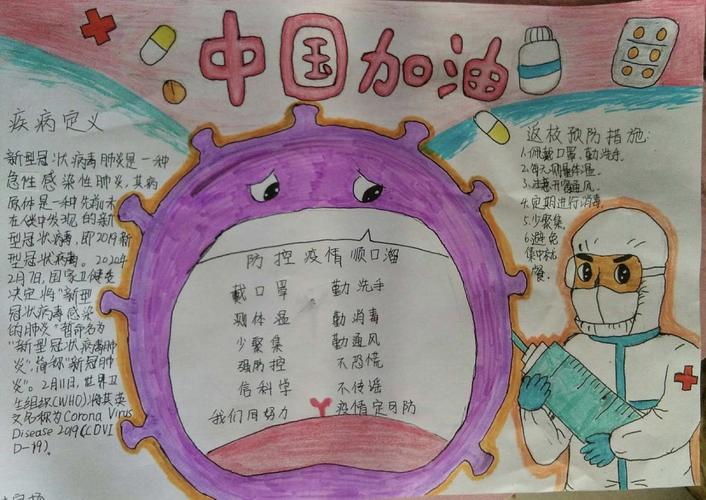 中国加油
疾病定义
新型冠状病毒肺炎是一种
急性感染性肺炎，其病
原体是一种先前未
在人中发现的新
型冠状病毒，即2019新
型冠状病毒。2020年
2月7日，国家卫健委
决定将"新型
冠状病毒感染
的肺炎"暂命名为
"新型冠状病毒肺
炎"，简称"新冠肺
炎"。2月11日，世界卫
生组织(WHO)将其英
文名称为Corona Virus
Disease 2019(COVI
D-19)。
防控疫情顺口溜
戴口罩 勤洗手
测体温 勤消毒
少聚集 勤通风
强防控 不恐慌
信科学 不传谣
我们同努力 疫情定可防
返校预防措施:
1.佩戴口罩,勤洗手。
2.每天测量体温。
3.注意开窗通风。
4.定期进行消毒。
5.少聚集。
6.避免
集中就
餐。